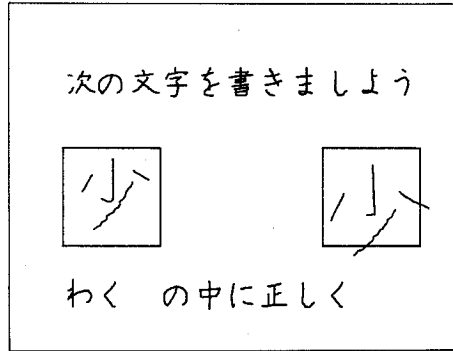 次の文字を書きましょう
少 少
わく の中に正しく